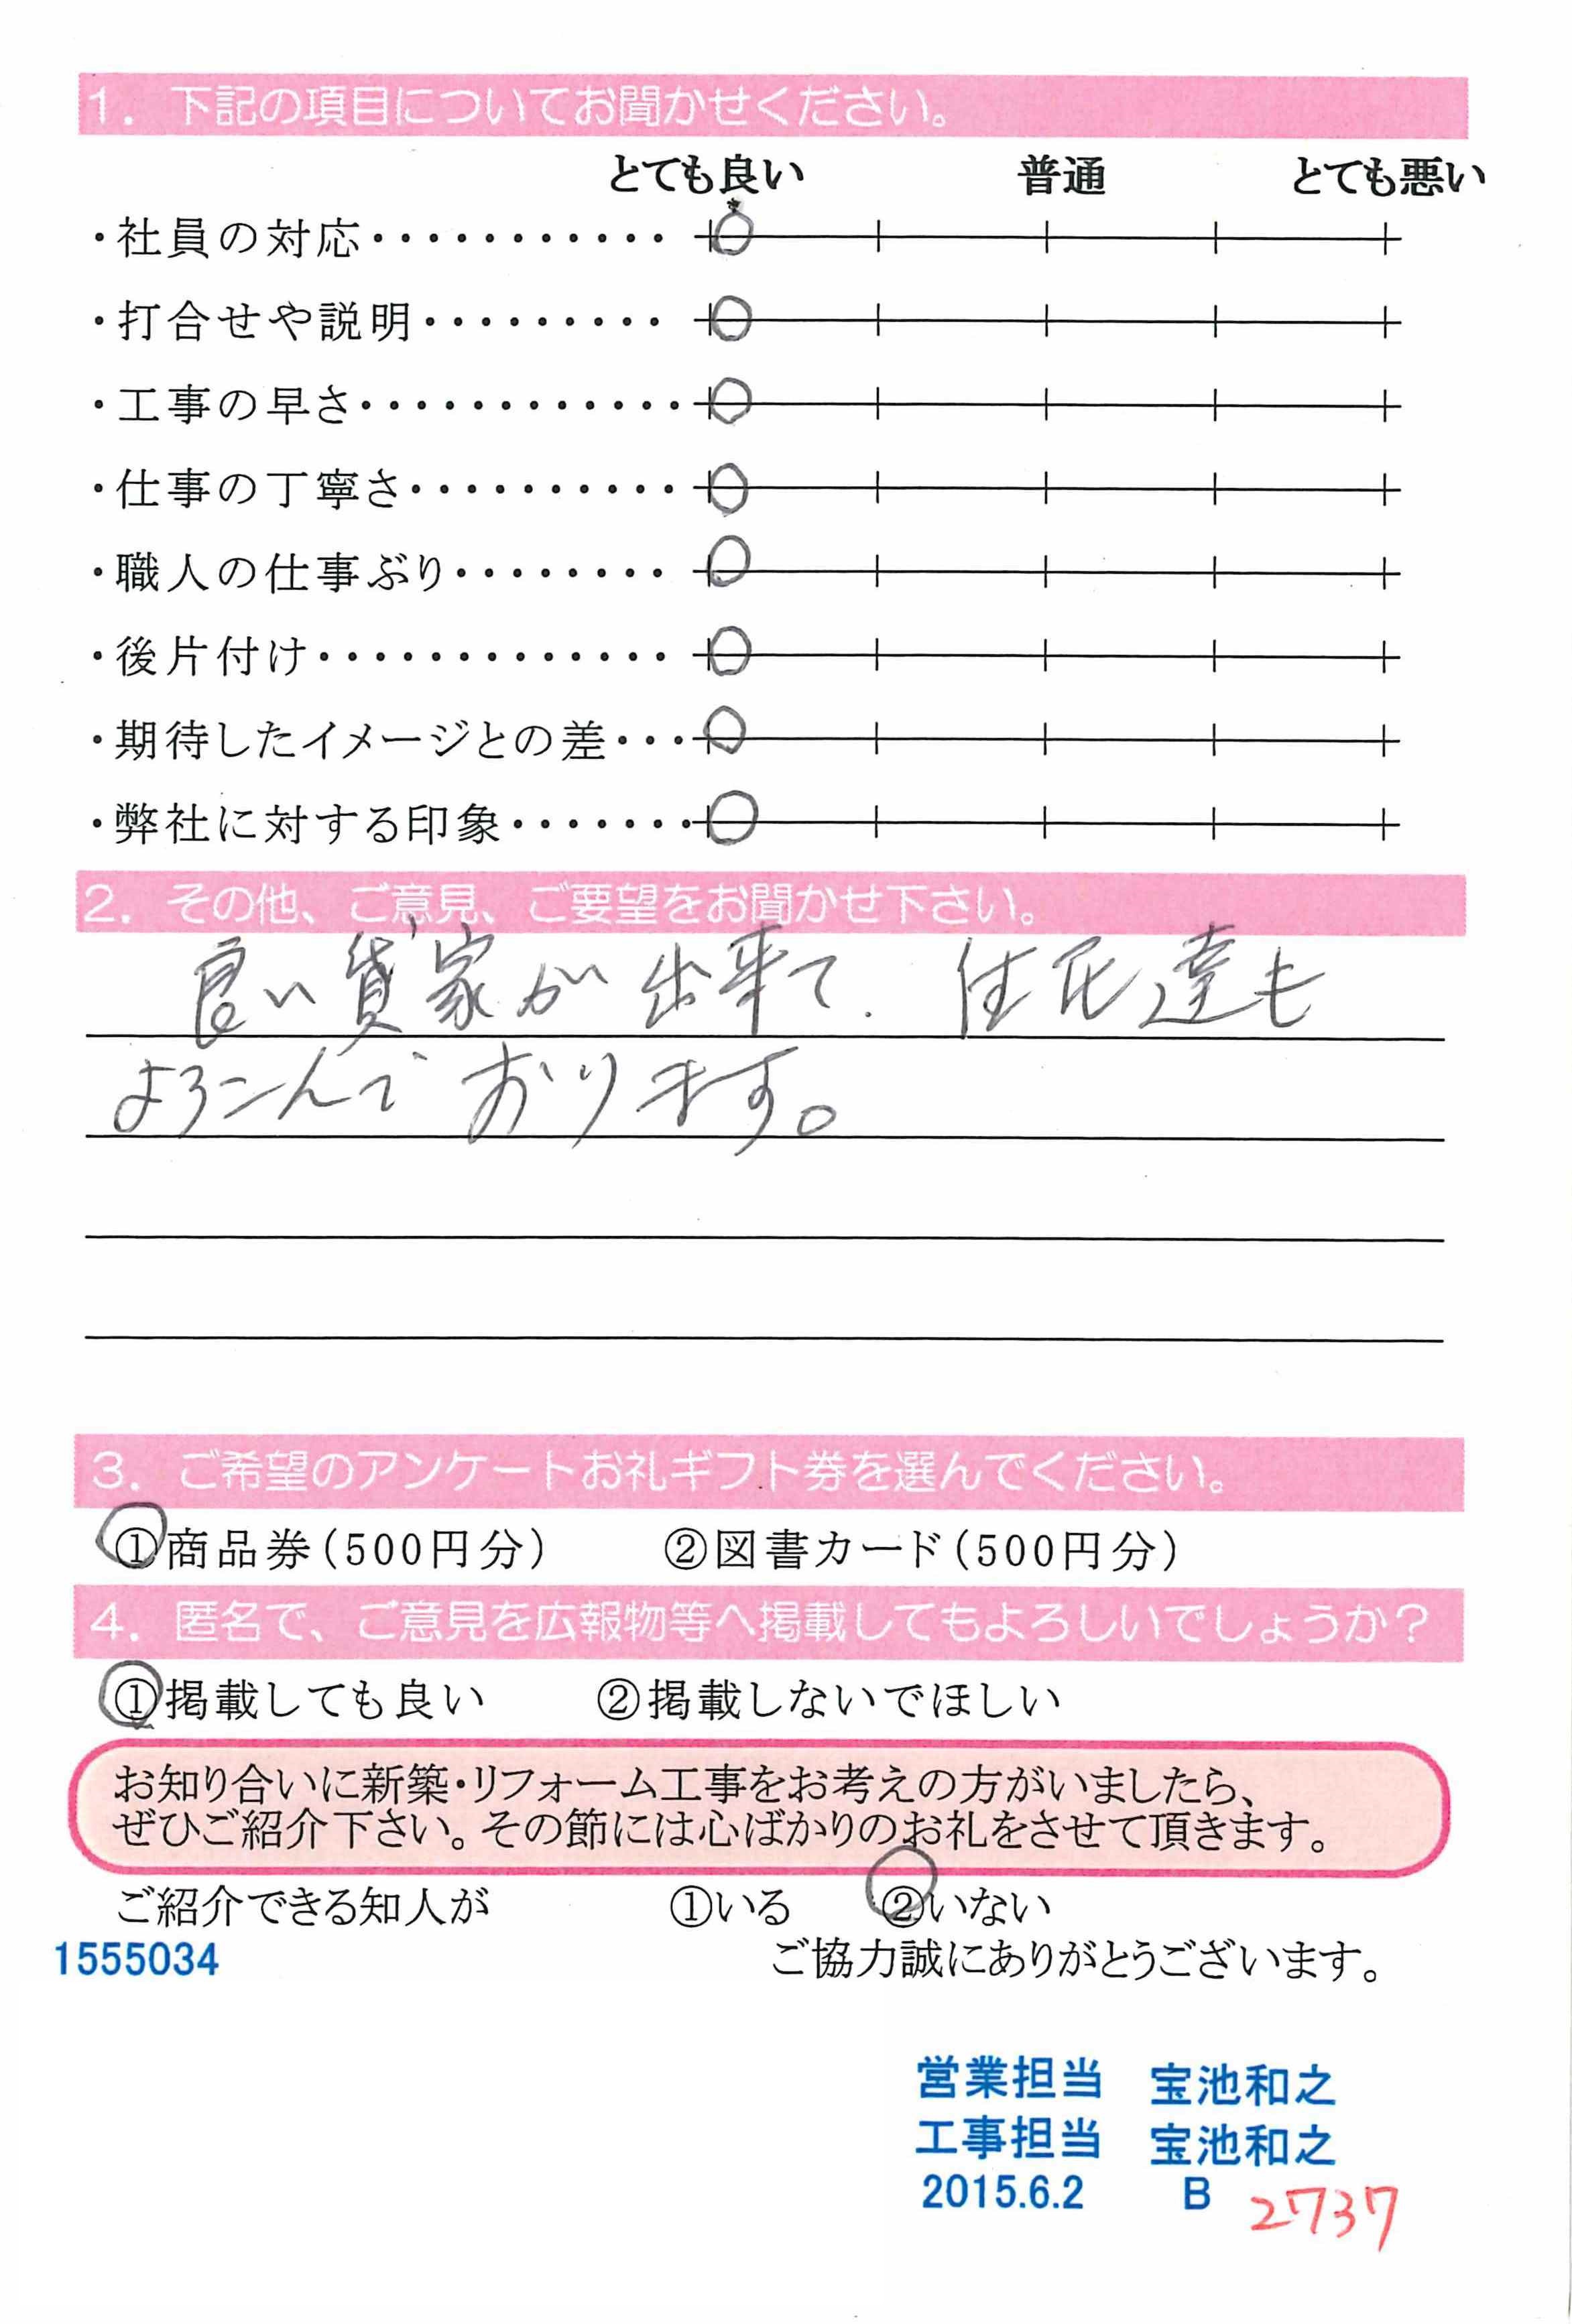 1. 下記の項目についてお聞かせください。
とても良い 普通 とても悪い
・社員の対応・・・・・・・・・・・
・打合せや説明・・・・・・・・・
・工事の早さ・・・・・・・・・・・・
・仕事の丁寧さ・・・・・・・・・・
・職人の仕事ぶり・・・・・・・・
・後片付け・・・・・・・・・・・・・
・期待したイメージとの差・・・
・弊社に対する印象・・・・・・・
2. その他、ご意見、ご要望をお聞かせ下さい。
良い貸家が出来て. 住民達も
よろこんでおります。
3. ご希望のアンケートお礼ギフト券を選んでください。
①商品券(500円分) ②図書カード(500円分)
4. 匿名で、ご意見を広報物等へ掲載してもよろしいでしょうか?
①掲載しても良い ②掲載しないでほしい
お知り合いに新築・リフォーム工事をお考えの方がいましたら、
ぜひご紹介下さい。その節には心ばかりのお礼をさせて頂きます。
ご紹介できる知人が ①いる ②いない
1555034 ご協力誠にありがとうございます。
営業担当 宝池和之
工事担当 宝池和之
2015.6.2 B 2737